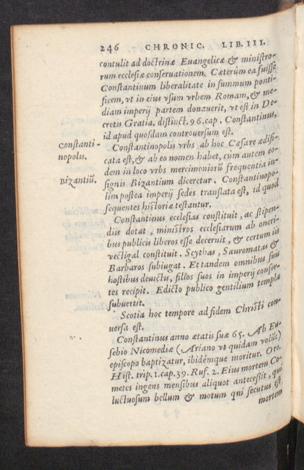 246 CHRONIC. LIB. III.
contulit ad doctrinæ Euangelicæ & ministro-
rum ecclesiæ conseruationem. Cæterùm ea fuisse
Constantinum liberalitate in summum ponti-
ficem, vt in eius vsum vrbem Romam, & me-
diam imperij partem donauerit, vt est in De-
cretis Gratia. distinct. 96. cap. Constantinus,
id apud quosdam controuersum est.
Constanti-
nopolis.
Constantinopolis vrbs ab hoc Cæsare ædifi-
cata est, & ab eo nomen habet, cum autem eo-
dem in loco vrbs mercimoniorū frequentia in-
Bizantiū.
signis Bizantium diceretur. Constantinopo-
lim postea imperij sedes translata est, id quod
sequentes historiæ testantur.
Constantinus ecclesias constituit, ac stipen-
dijs dotat, ministros ecclesiarum ab oneri-
bus publicis liberos esse decernit, & certum ius
vectigal constituit. Scythas, Sauromatas &
Barbaros subiugat. Et tandem omnibus suis
hostibus deuictis, filios suos in imperij consor-
tes recipit. Edicto publico gentilium templa
subuertit.
Scotia hoc tempore ad fidem Christi con-
uersa est.
Constantinus anno ætatis suæ 65. Ab Eu-
sebio Nicomediæ (Ariano vt quidam volūt)
episcopo baptizatur, ibidémque moritur. Oro.
Hist. trip. 1. cap. 39. Ruf. 2. Eius mortem Co-
metes ingens mensibus aliquot antecessit, qui
luctuosum bellum & motum qui secutus est
mortem